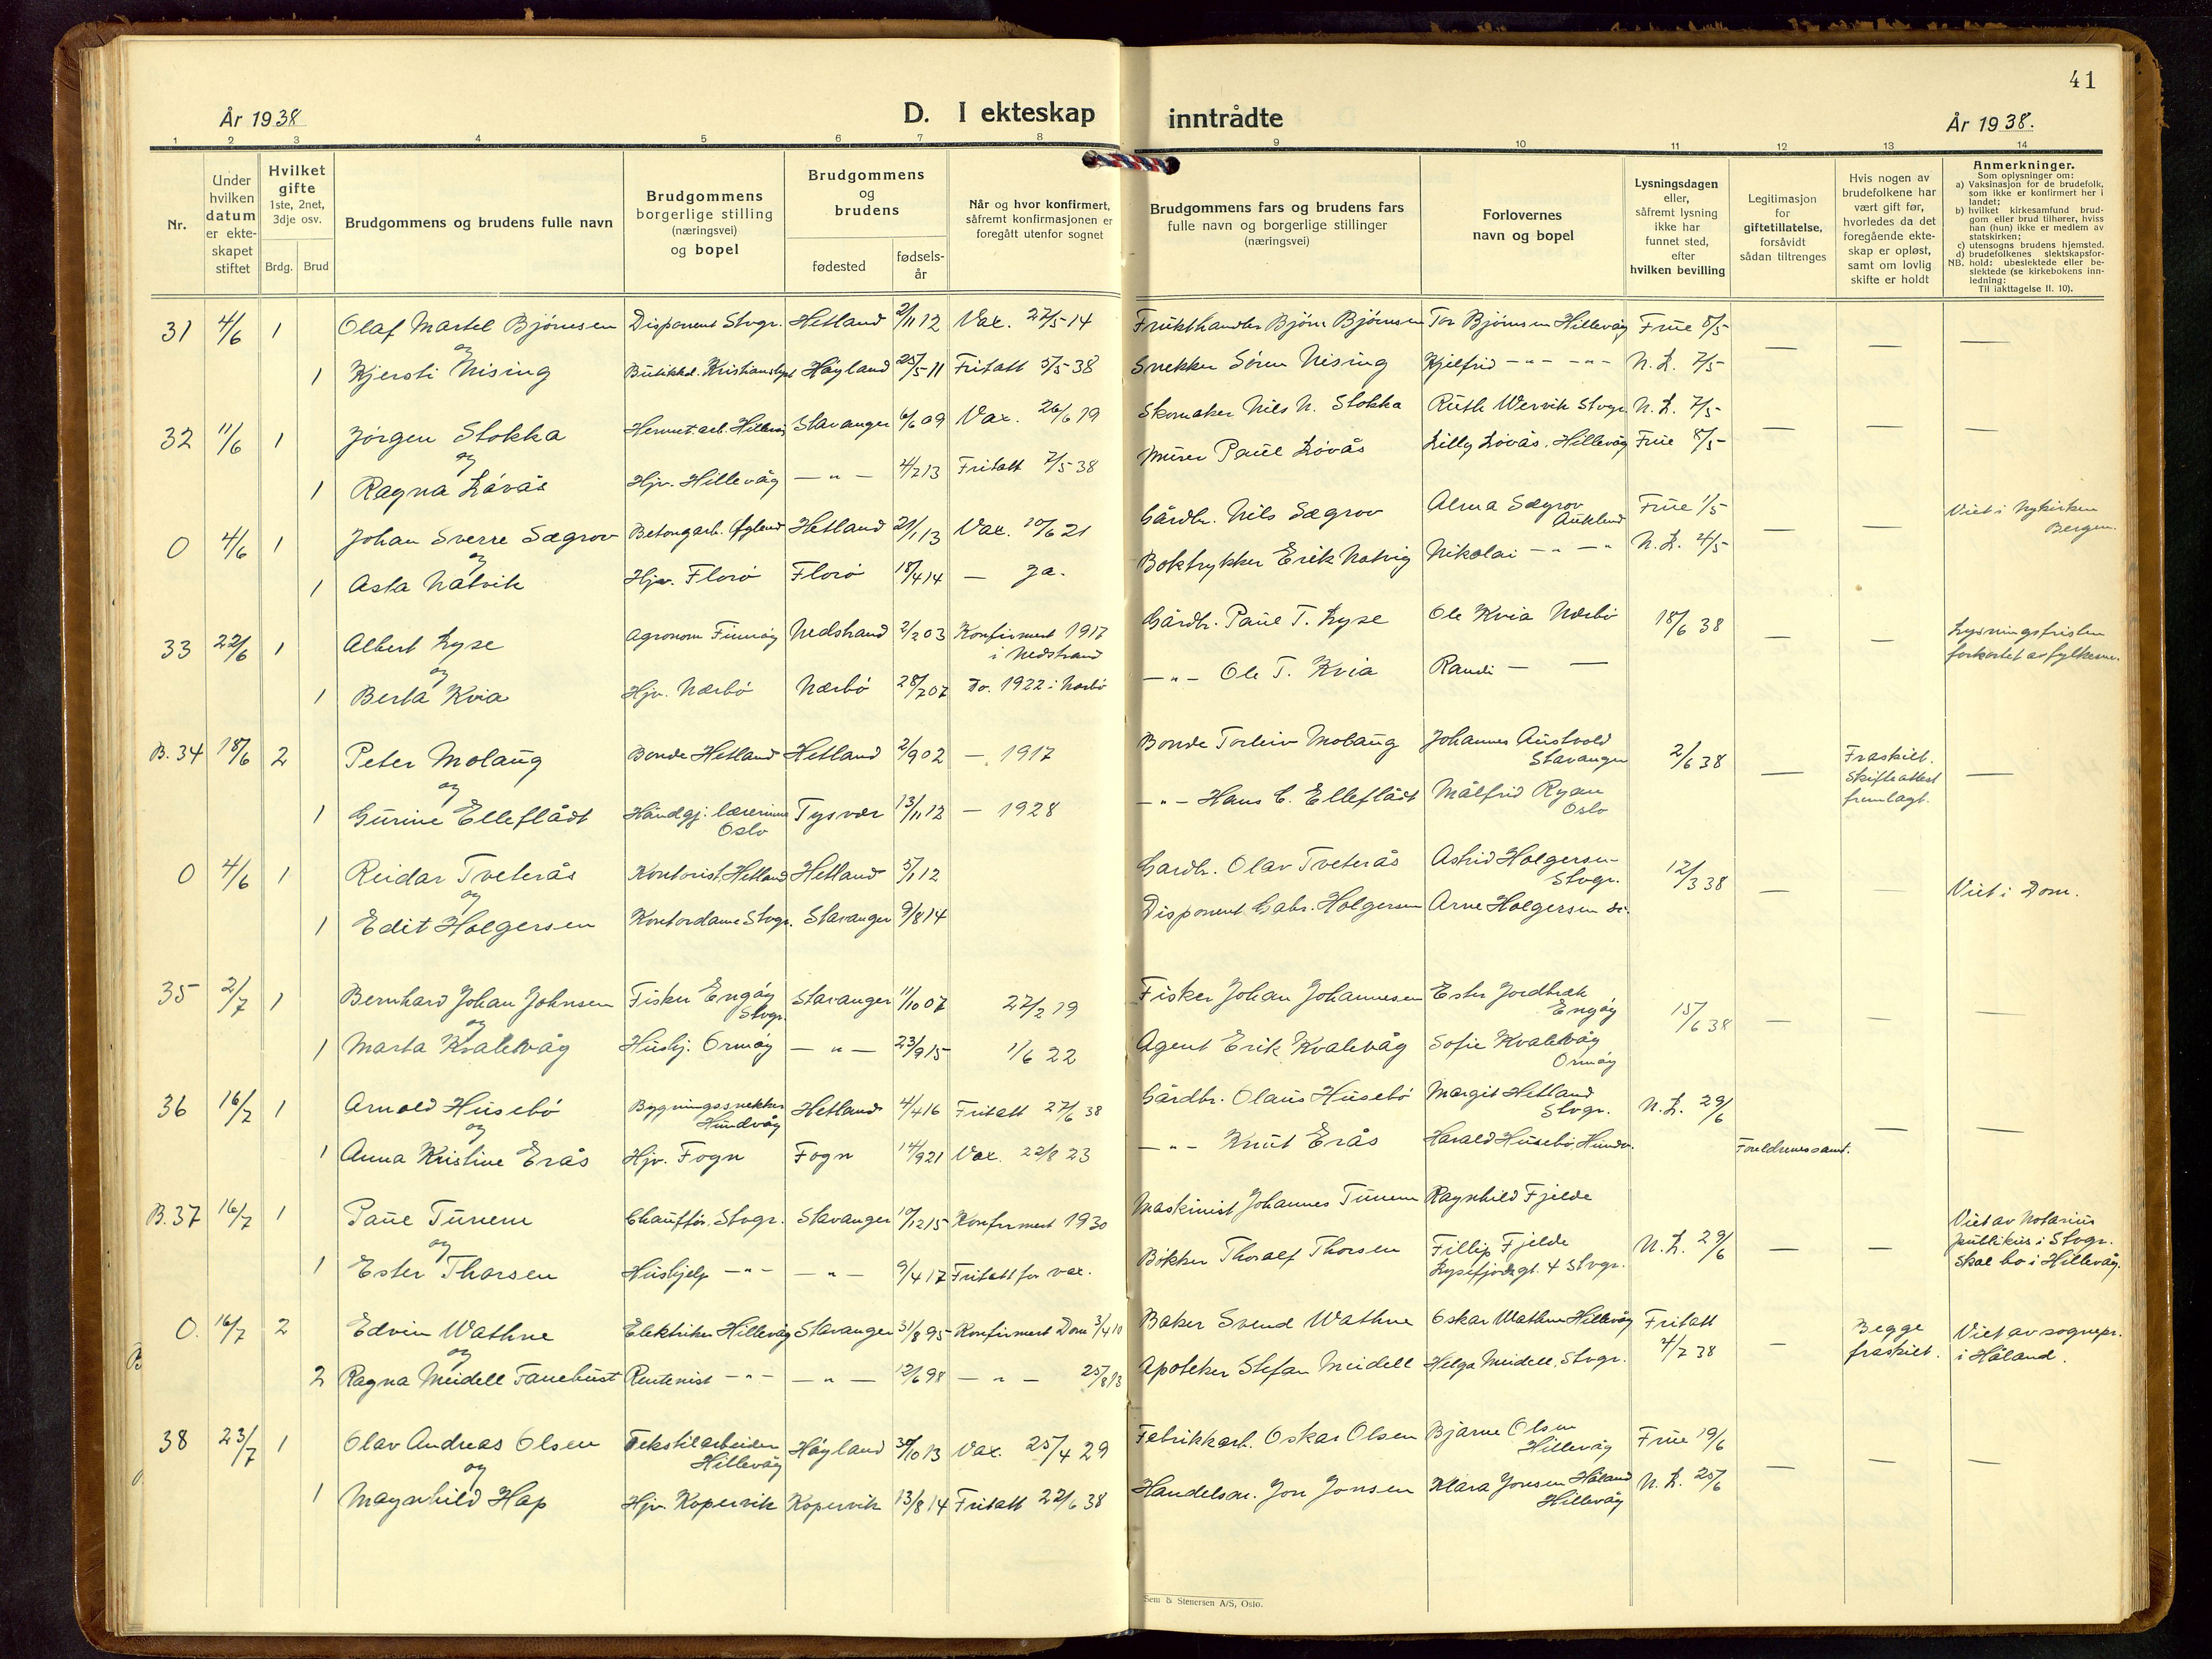 41
År 1938
D. I ekteskap inntrådte
År 1938.
1 2 3 4 5 6 7 8 9 10 11 12 13 14
Nr.
Under hvilken datum er ekteskapet stiftet
Hvilket gifte 1ste, 2net, 3dje osv.
Brdg. Brud
Brudgommens og brudens fulle navn
Brudgommens borgerlige stilling (næringsvei) og bopel
Brudgommens og brudens
fødested
fødsels-år
Når og hvor konfirmert, såfremt konfirmasjonen er foregått utenfor sognet
Brudgommens fars og brudens fars fulle navn og borgerlige stillinger (næringsvei)
Forlovernes navn og bopel
Lysningsdagen eller, såfremt lysning ikke har funnet sted, efter hvilken bevilling
Legitimasjon for giftetillatelse, forsåvidt sådan tiltrenges
Hvis nogen av brudefolkene har vært gift før, hvorledes da det foregående ekteskap er opløst, samt om lovlig skifte er holdt
Anmerkninger.
Som oplysninger om:
a) Vaksinasjon for de brudefolk, som ikke er konfirmert her i landet;
b) hvilket kirkesamfund brudgom eller brud tilhører, hviss han (hun) ikke er medlem av statskirken;
c) utensogns brudens hjemsted.
d) brudefolkenes slektskapsforhold: ubeslektede eller beslektede (se kirkebokens innledning:
NB. Til iakttagelse II. 10).
31 4/6 1 Olaf Martel Bjørnsen Disponent Stvgr. Hetland 2/11 12 Vax. 27/5-14 Frukthandler Bjørn Bjørnsen Tor Bjørnsen Hillevåg Frue 8/5 — — —
og
1 Kjersti Nising Høyland 25/5 11 Fritatt 5/5-38 Snekker Sören Nising Kjelfrid -"- -"- N.L. 7/5-
32 11/6 1 Jørgen Stokka Hermet.arb. Hillevåg Stavanger 6/6 09 Vax. 26/6 19 Skomaker Nils N. Stokka Ruth Wervik Stvgr. N.L. 7/5- — — —
og
1 Ragna Løvås Hjv. Hillevåg — " — 4/2 13 Fritatt 7/5-38 Murer Paul Løvås Lilly Løvås, Hillevåg Frue 8/5-
0 4/6 1 Johan Sverre Sægrov Betongarb. Hetland 21/1 13 Vax. 20/6 21 Gårdbr. Nils Sægrov Alma Sægrov Auklend Frue 1/5 — — Viet i Nykirken Bergen.
og
1 Asta Natvik Hjv. Florö Florö 18/4 14 — Ja. Boktrykker Erik Natvig Nikolai -"- -"- N.L. 4/5-
33 22/6 1 Albert Lyse Agronom Finnøy Nedstrand 2/2 03 Konfirmert 1917 i Nedstrand Gårdbr. Paul T. Lyse Ole Kvia Nærbö 18/6 38 — — Lysningsfristen forkortet av fylkesm.
og
1 Berta Kvia Hjv. Nærbö Nærbö 28/7 07 Do. 1922 i Nærbö -"- Ole T. Kvia Randi — —
B. 34 18/6 2 Peter Molaug Bonde Hetland Hetland 2/9 02 — 1917 Bonde Torleiv Molaug Johannes Austvold Stavanger 2/6 38 — Fraskilt. Skifteattest fremlagt. —
og
1 Gurine Elleflådt Håndgj. lærerinne Oslo Tysvær 13/11 12 — 1928 -"- Hans C. Elleflådt Målfrid Ryan Oslo
0 4/6 1 Reidar Tveterås Kontorist, Hetland Hetland 5/1 12 Gardbr. Olav Tveterås Astrid Holgersen Stvgr. 12/3 38 — — Viet i Dom.
og
1 Edit Holgersen Kontordame Stvgr. Stavanger 9/8 14 Disponent Gabr. Holgersen Arne Holgersen do.
35 2/7 1 Bernhard Johan Johnsen Fisker Engøy Stvgr. Stavanger 11/10 07 27/2 19 Fisker Johan Johannesen Ester Jordbræk Engøy 15/6 38 — — —
og
1 Marta Kvalevåg Hushj. Ormøy — " — 23/9 15 1/6 22 Agent Erik Kvalevåg Sofie Kvalevåg Ormøy
36 16/7 1 Arnold Husebö Bygningssnekker Hundvåg Hetland 4/4 16 Fritatt 27/6 38 Gårdbr. Olaus Husebö Margit Hetland Stvgr. N.L. 29/6 — —
og
1 Anna Kristine Erås Hjv. Fogn Fogn 14/9 21 Vax. 22/8 23 -"- Knut Erås Harald Husebö, Hundv. Foreldrenes samt.
B. 37 16/7 1 Paul Tunem Chauffør. Stvgr. Stavanger 10/12 15 Konfirmert 1930 Maskinist Johannes Tunem Ragnhild Fjelde N.L. 29/6 — — Viet av Notarius publikus i Stvgr. Skal bo i Hillevåg.
og
1 Ester Thorsen Hushjelp -"- — " — 9/4 17 Fritatt for vax. Bökker Thoralf Thorsen Fillip Fjelde Lysefjordgt. 4 Stvgr.
0. 16/7 2 Edvin Wathne Elektriker Hillevåg Stavanger 31/8 95 Konfirmert Dom 3/4 10 Baker Svend Wathne Oskar Wathne Hillevåg Fritatt 4/7 38 — Begge fraskilt. Viet av sognepr. i Håland.
og
2 Ragna Meidell Fanebust Rentenist -"- — " — 12/6 98 — " — 25/8 13 Apoteker Stefan Meidell Helga Meidell, Stvgr.
38 23/7 1 Olav Andreas Olsen Tekstilarbeider Hillevåg Høyland 30/10 13 Vax. 25/4 29 Fabrikkarb. Oskar Olsen Bjarne Olsen Hillevåg Frue 19/6 — — —
og
1 Magnhild Hap Hjv. Kopervik Kopervik 13/8 14 Fritatt 22/6 38 Handelsm. Jon Jonsen Klara Jonsen Håland Hillevåg N.L. 25/6
Sem & Stenersen A/S, Oslo.